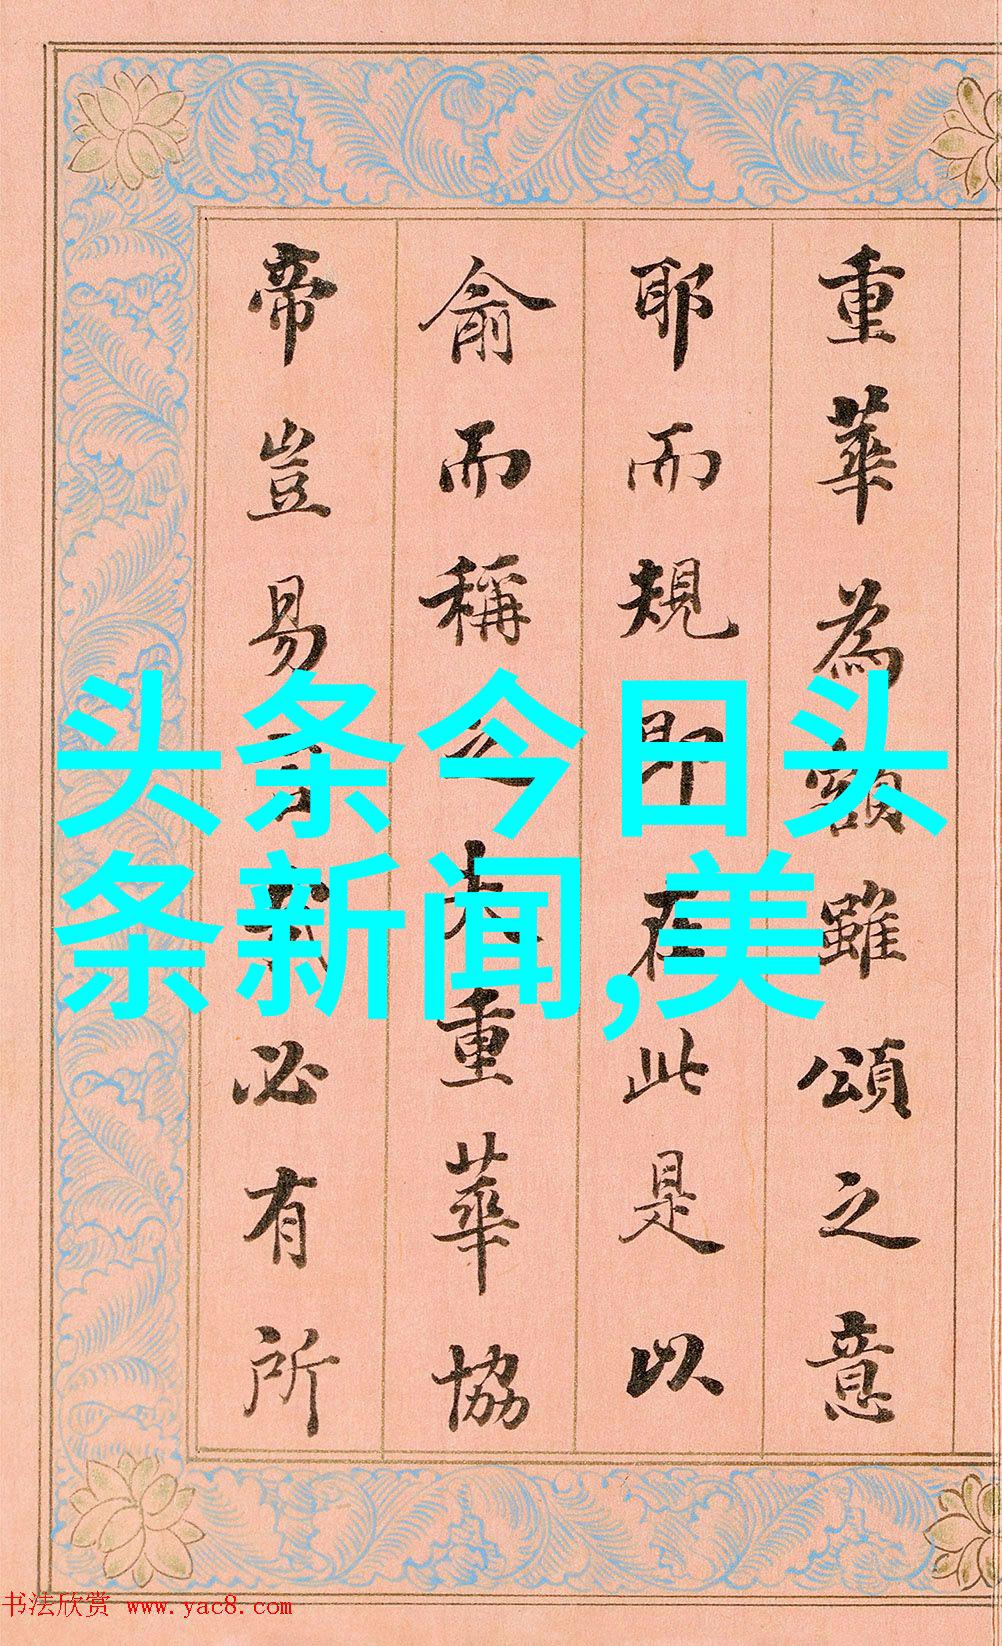 重華為額雖頌之意
耶而規即在此是以
俞而稱之夫重華協
帝豈易必有所
头条今日头
条新闻,美
书法欣赏 www.yac8.com